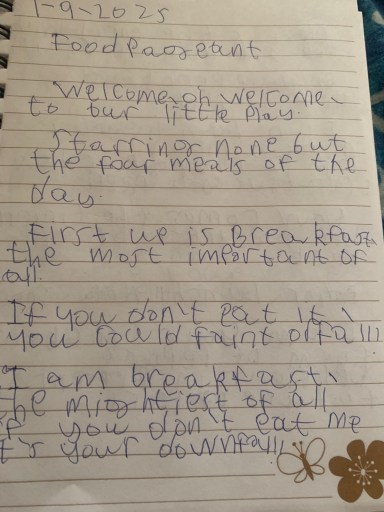 1-9-2025
Food Pageant
Welcome, oh welcome,
to our little play.
Starring none but
the four meals of the
day.
First up is Breakfast,
the most important of
all.
If you don't eat it,
you could faint or fall
I am breakfast,
the mightiest of all
if you don't eat me
it's your downfall